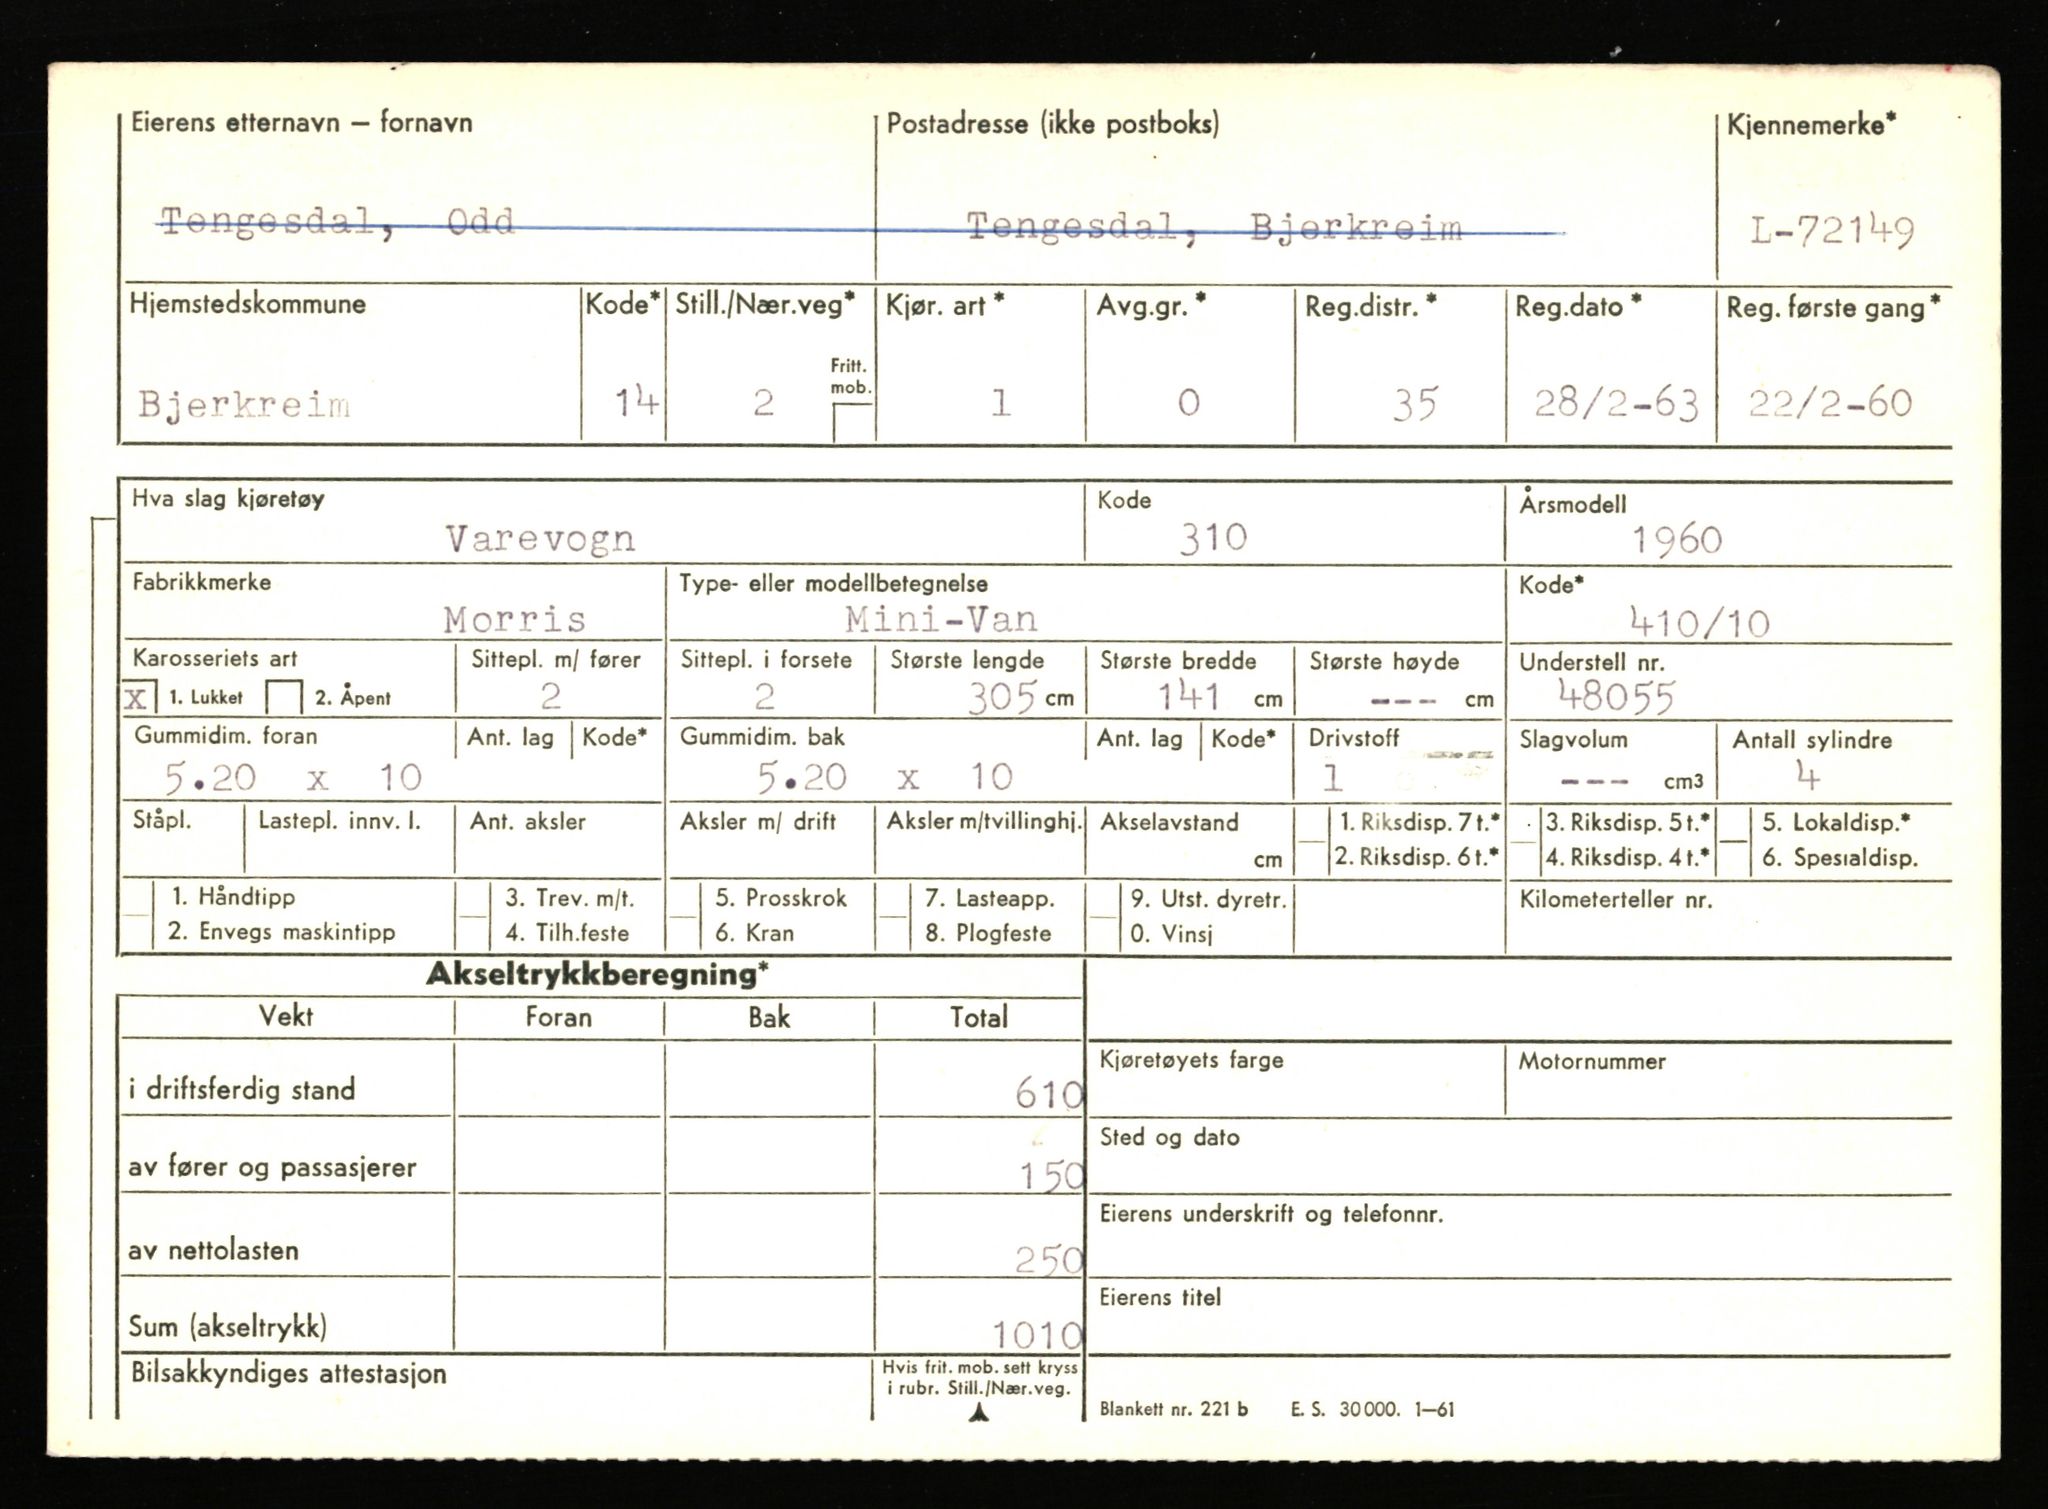 Eierens etternavn — fornavn Postadresse (ikke postboks) Kjennemerke*
Tengesdal, Odd Tengesdal, Bjerkreim L-72149
Hjemstedskommune Kode* Still./Nær.veg* Kjør. art * Avg.gr. * Reg.distr. * Reg.dato * Reg. første gang *
Fritt.
mob.
Bjerkreim 14 2 1 0 35 28/2-63 22/2-60
Hva slag kjøretøy Kode Årsmodell
Varevogn 310 1960
Fabrikkmerke Type- eller modellbetegnelse Kode*
Morris Mini-Van 410/10
Karosseriets art Sittepl. m/ fører Sittepl. i forsete Største lengde Største bredde Største høyde Understell nr.
X 1. Lukket 2. Åpent 2 2 305 cm 141 cm --- cm 48055
Gummidim. foran Ant. lag Kode* Gummidim. bak Ant. lag Kode* Drivstoff Slagvolum Antall sylindre
5.20 x 10 5.20 x 10 1 --- cm3 4
Ståpl. Lastepl. innv. l. Ant. aksler Aksler m/ drift Aksler m/tvillinghj. Akselavstand 1. Riksdisp. 7 t.* 3. Riksdisp. 5 t.* 5. Lokaldisp.*
cm 2. Riksdisp. 6 t.* 4. Riksdisp. 4 t.* 6. Spesialdisp.
1. Håndtipp 3. Trev. m/t. 5. Prosskrok 7. Lasteapp. 9. Utst. dyretr. Kilometerteller nr.
2. Envegs maskintipp 4. Tilh.feste 6. Kran 8. Plogfeste 0. Vinsj
Akseltrykkberegning*
Vekt Foran Bak Total
Kjøretøyets farge Motornummer
i driftsferdig stand 610
Sted og dato
av fører og passasjerer 150
Eierens underskrift og telefonnr.
av nettolasten 250
Eierens titel
Sum (akseltrykk) 1010
Bilsakkyndiges attestasjon Hvis frit. mob. sett kryss
i rubr. Still./Nær.veg.
Blankett nr. 221 b E. S. 30 000. 1—61